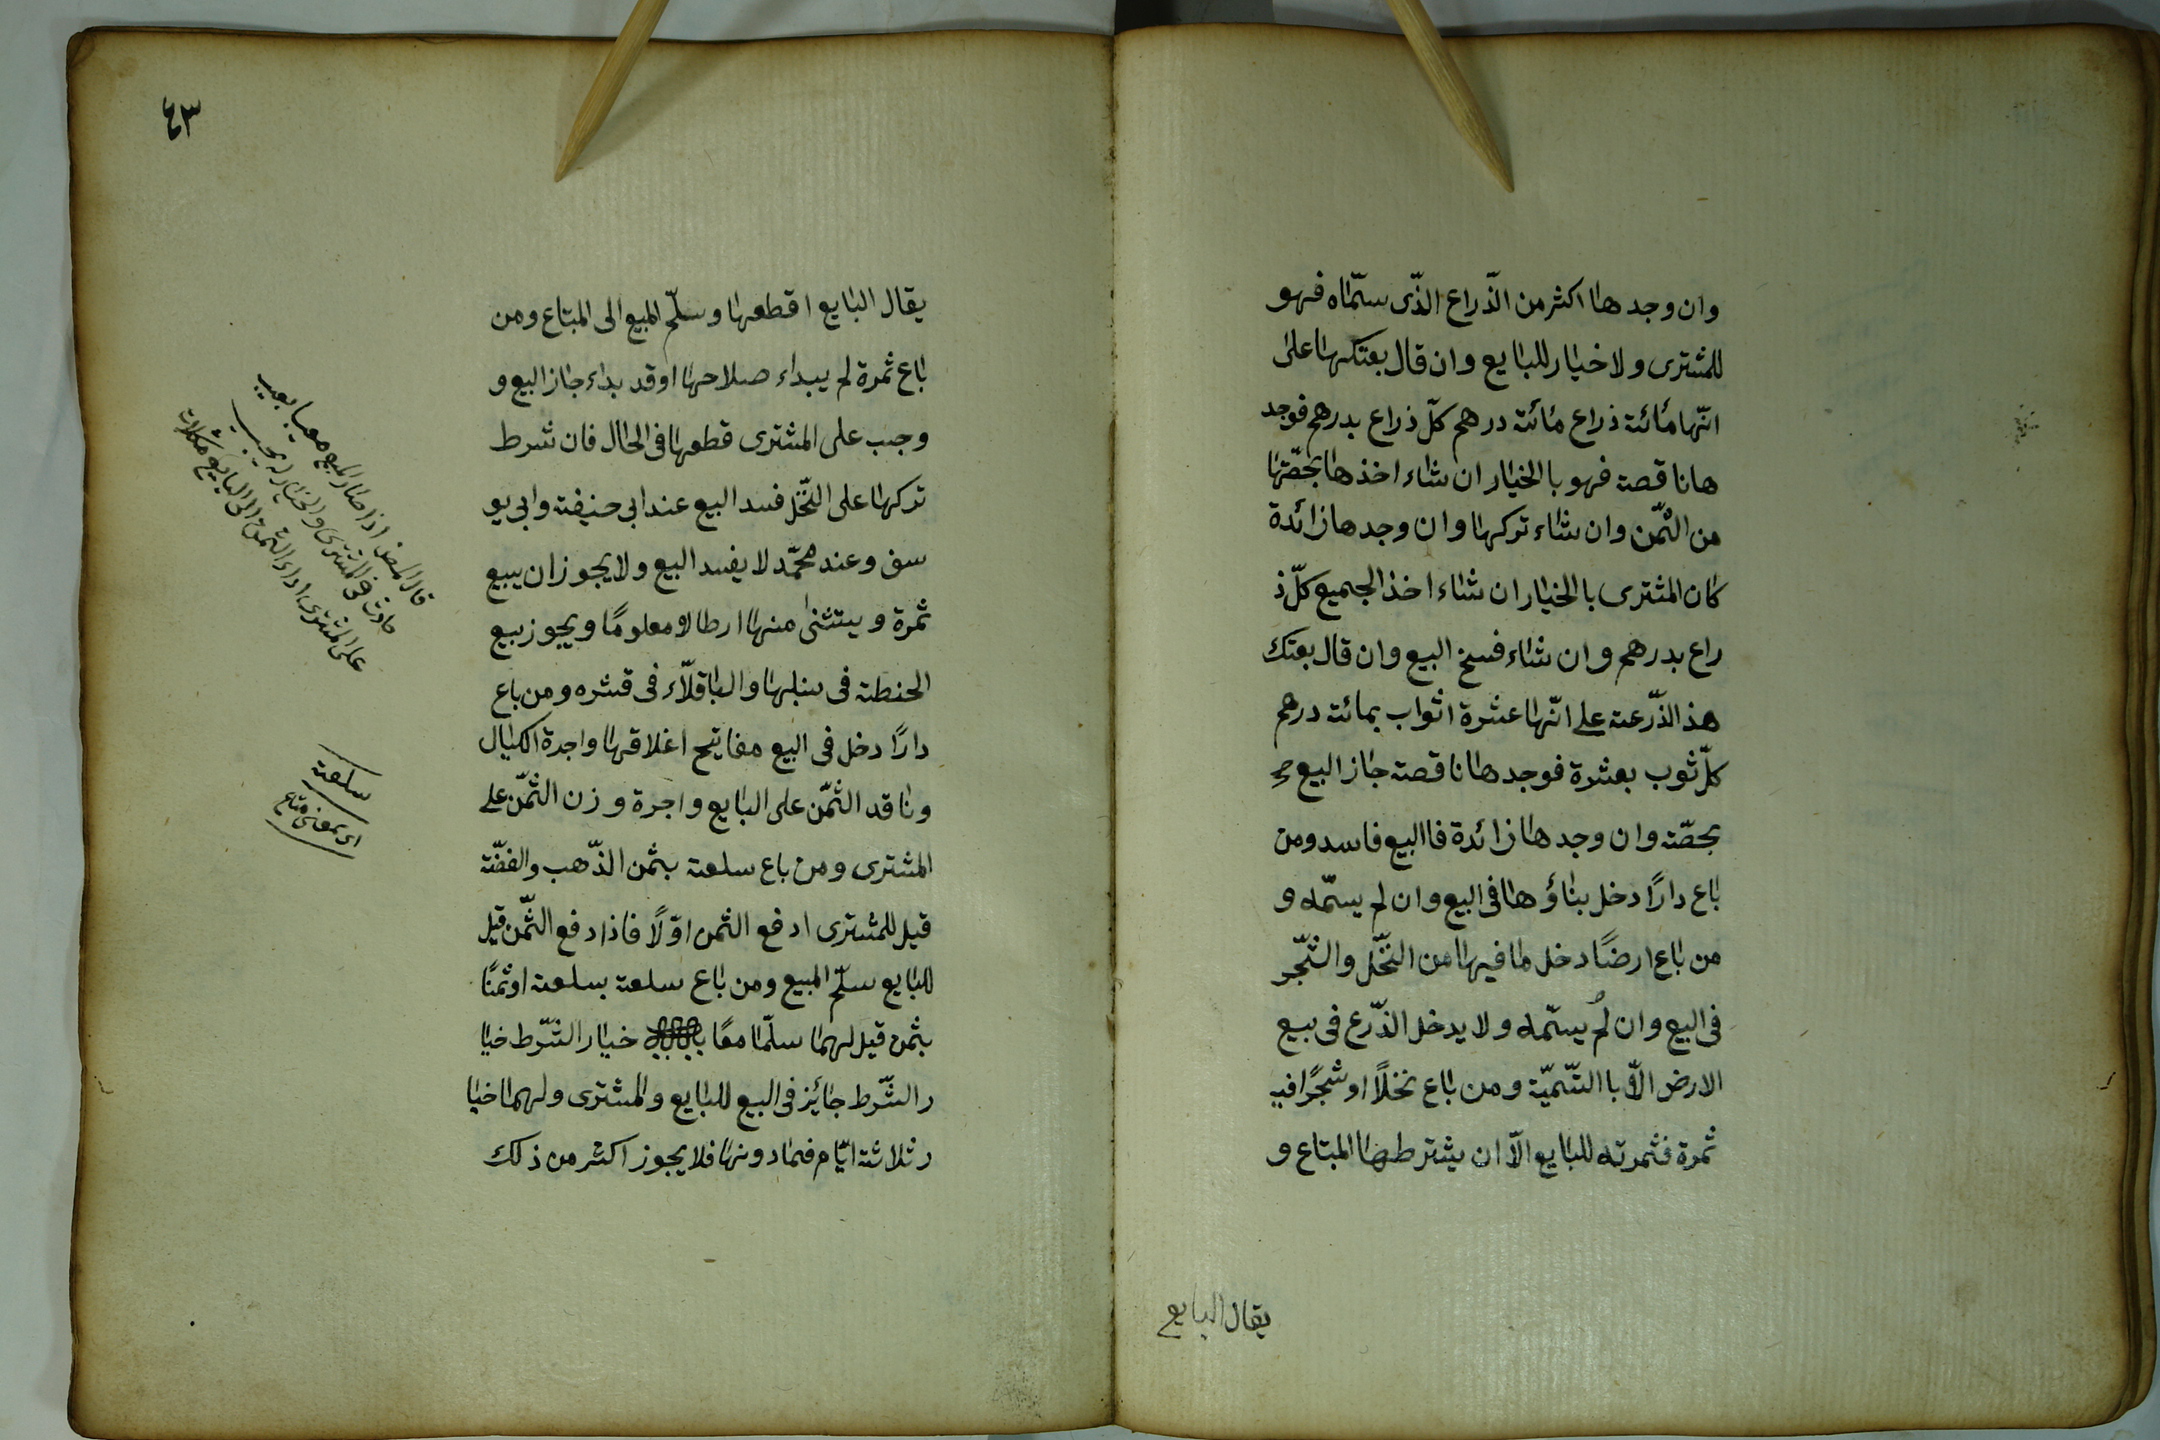 وان وجدها اكثر من الذّراع الذّى سمّاه فهو
للمشترى ولا خيار للبايع وان قال بعتكها على
انّها مائة ذراع مائة درهم كلّ ذراع بدرهم فوجد
ها ناقصة فهو بالخيار ان شاء اخذها بحصّتها
من الثّمن وان شاء تركها وان وجدها زائدة
كان المشترى بالخيار ان شاء اخذ الجميع كلّ ذ
راع بدرهم وان شاء فسخ البيع وان قال بعتك
هذ الذّرعة على انّها عشرة اثواب بمائة درهم
كلّ ثوب بعشرة فوجدها ناقصة جاز البيع
بحصّته وان وجدها زائدة فاالبيع فاسد ومن
باع دارًا دخل بناؤها فى البيع وان لم يسمّه و
من باع ارضًا دخل ما فيها من النّخل والشّجر
فى البيع وان لم يسمّه ولا يدخل الذّرع فى بيع
الارض الّا باالتّسميّة ومن باع نخلًا او شجرًا فيه
ثمرة فثمرته للبايع الّا ان يشترطها المبتاع و
يقال البايع
٤٣
يقال البايع اقطعها وسلّم المبيع الى المبتاع ومن
باع ثمرة لم يبداء صلاحها او قد بداء جاز البيع و
وجب على المشترى قطعها فى الحال فان شرط
تركها على النّخل فسد البيع عند ابى حنيفة وابى يو
سف وعند محمّد لا يفسد البيع ولا يجوز ان يبيع
ثمرة ويستثنى منها ارطالا معلومًا ويجوز بيع
الحنطة فى سنبلها والباقلّاء فى قشره ومن باع
دارًا دخل فى البيع مفاتيح اغلاقها واجرة الكيال
وناقد الثّمن على البايع واجرة وزن الثّمن على
المشترى ومن باع سلعة بثمن الذّهب والفضّة
قيل للمشترى ادفع الثمن اوّلًا فاذا دفع الثّمن قيل
للبايع سلّم المبيع ومن باع سلعة بسلعة او ثمنًا
بثمن قيل لهما سلّما معًا خيار الشّرط خيا
ر الشّرط جائز فى البيع للبايع والمشترى ولهما خيا
ر ثلاثة ايّام فما دونها فلا يجوز اكثر من ذلك
قال المص اذا صار المبيع معيبا بعيب
حادث فى المشترى والخيار له يجب
على المشترى اداء الثمن الى البايع
سلعة
اى بمعنى متاع